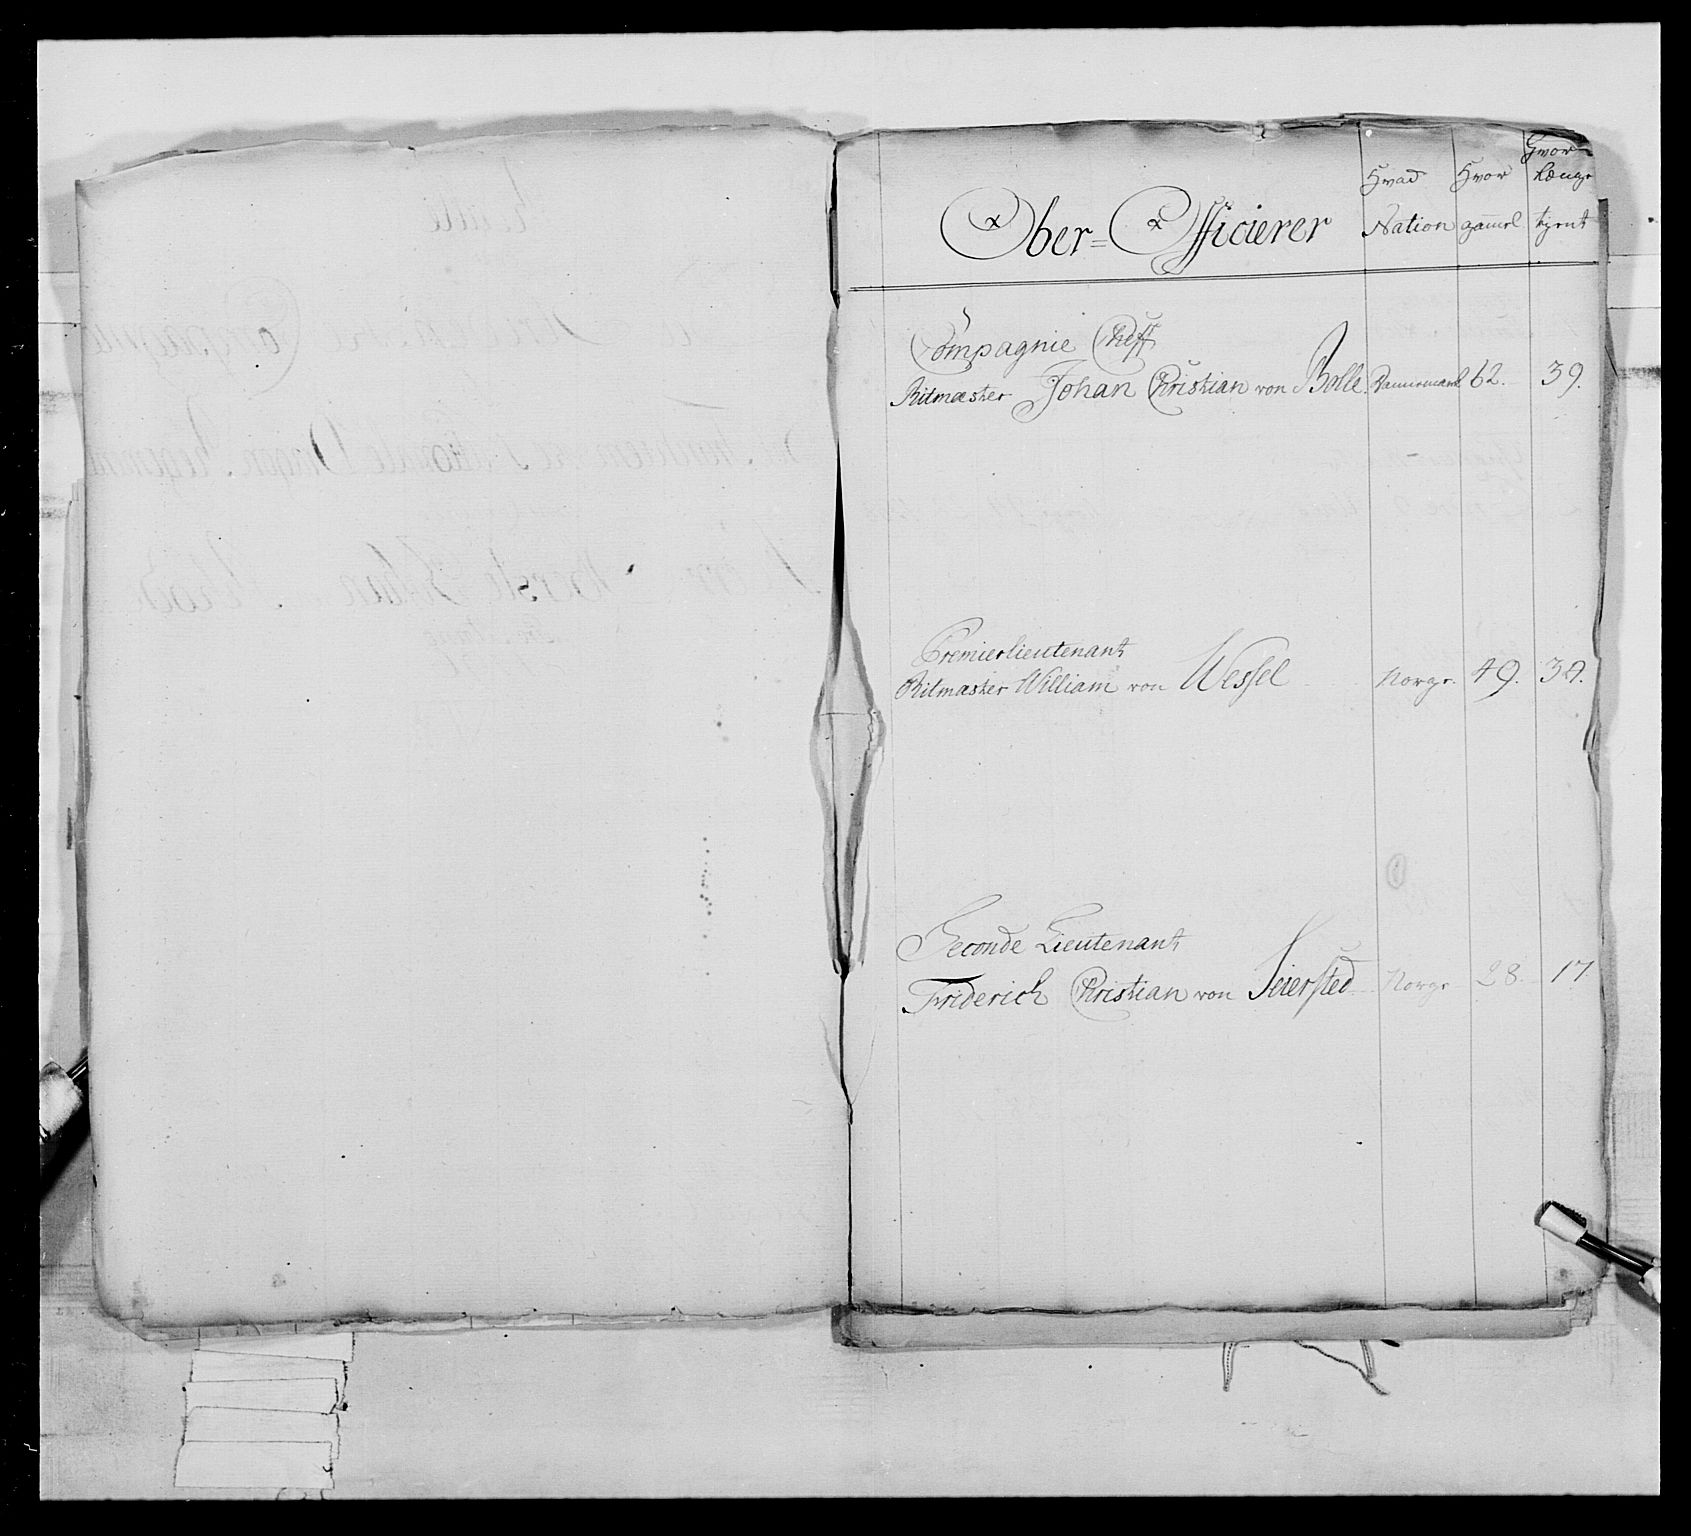 Ober=Officierer
Hvad Nation
Hvor gammel
Hvor længe tient
Compagnie Cheff
Ritmester Johan Christian von Bolle. Dannemark 62. 39.
Premierlieutenant
Ritmester William von Wessel Norge. 49. 34.
Seconde Lieutenant
Friderich Christian von Seiersted Norge 28. 17